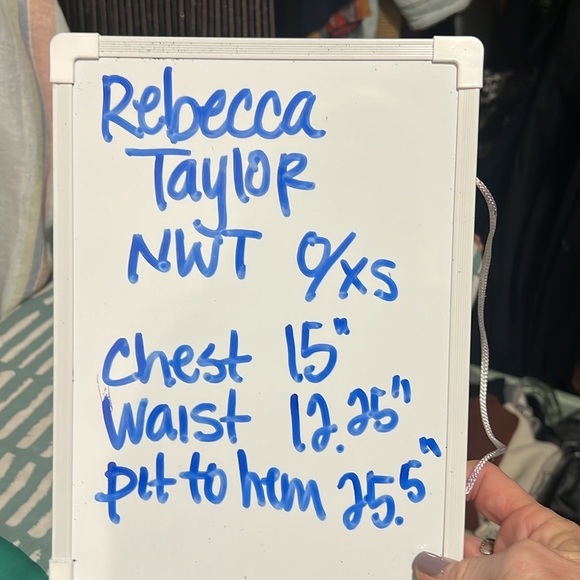 Rebecca
Taylor
NWT 0/xs
Chest 15"
Waist 12.25"
pit to hem 25.5"